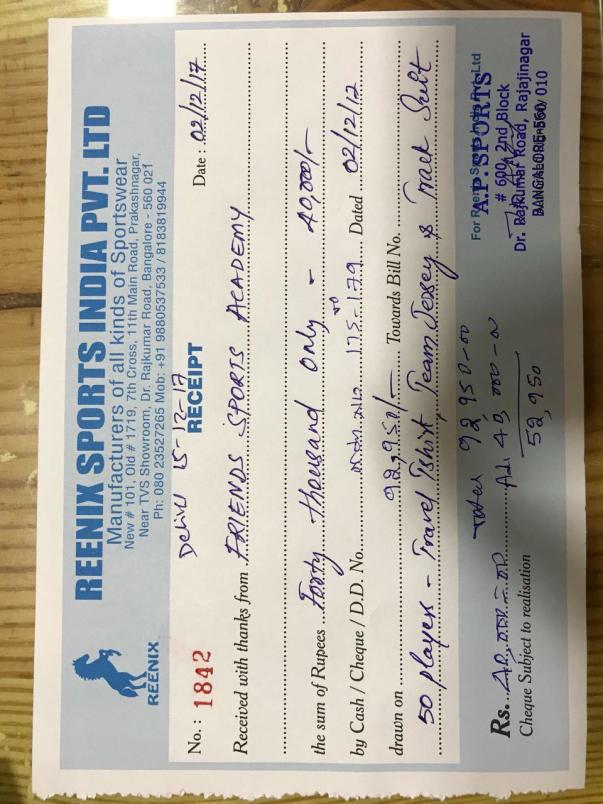 REENIX SPORTS INDIA PVT. LTD
Manufacturers of all kinds of Sportswear
New # 101, Old # 1719, 7th Cross, 11th Main Road, Prakashnagar,
Near TVS Showroom, Dr. Rajkumar Road, Bangalore - 560 021
Ph: 080 23527265 Mob: +91 9880537533 / 8183819944
REENIX
15-12-17
No. : 1842 RECEIPT Date : 02/12/17
Received with thanks from FRIENDS SPORTS ACADEMY
the sum of Rupees Forty thousand only - 40,000/-
by Cash / Cheque / D.D. No. Dated 02/12/12
drawn on 92,950/- Towards Bill No.
50 players - Travel Tshirt, Team Jersey & Track Suit
Total 92950-00
Rs. Adv 40,000-00
52,950
Cheque Subject to realisation
For Reenix Sports India Pvt. Ltd
A.P. SPORTS
# 600, 2nd Block
Dr. Rajkumar Road, Rajajinagar
BANGALORE-560 010